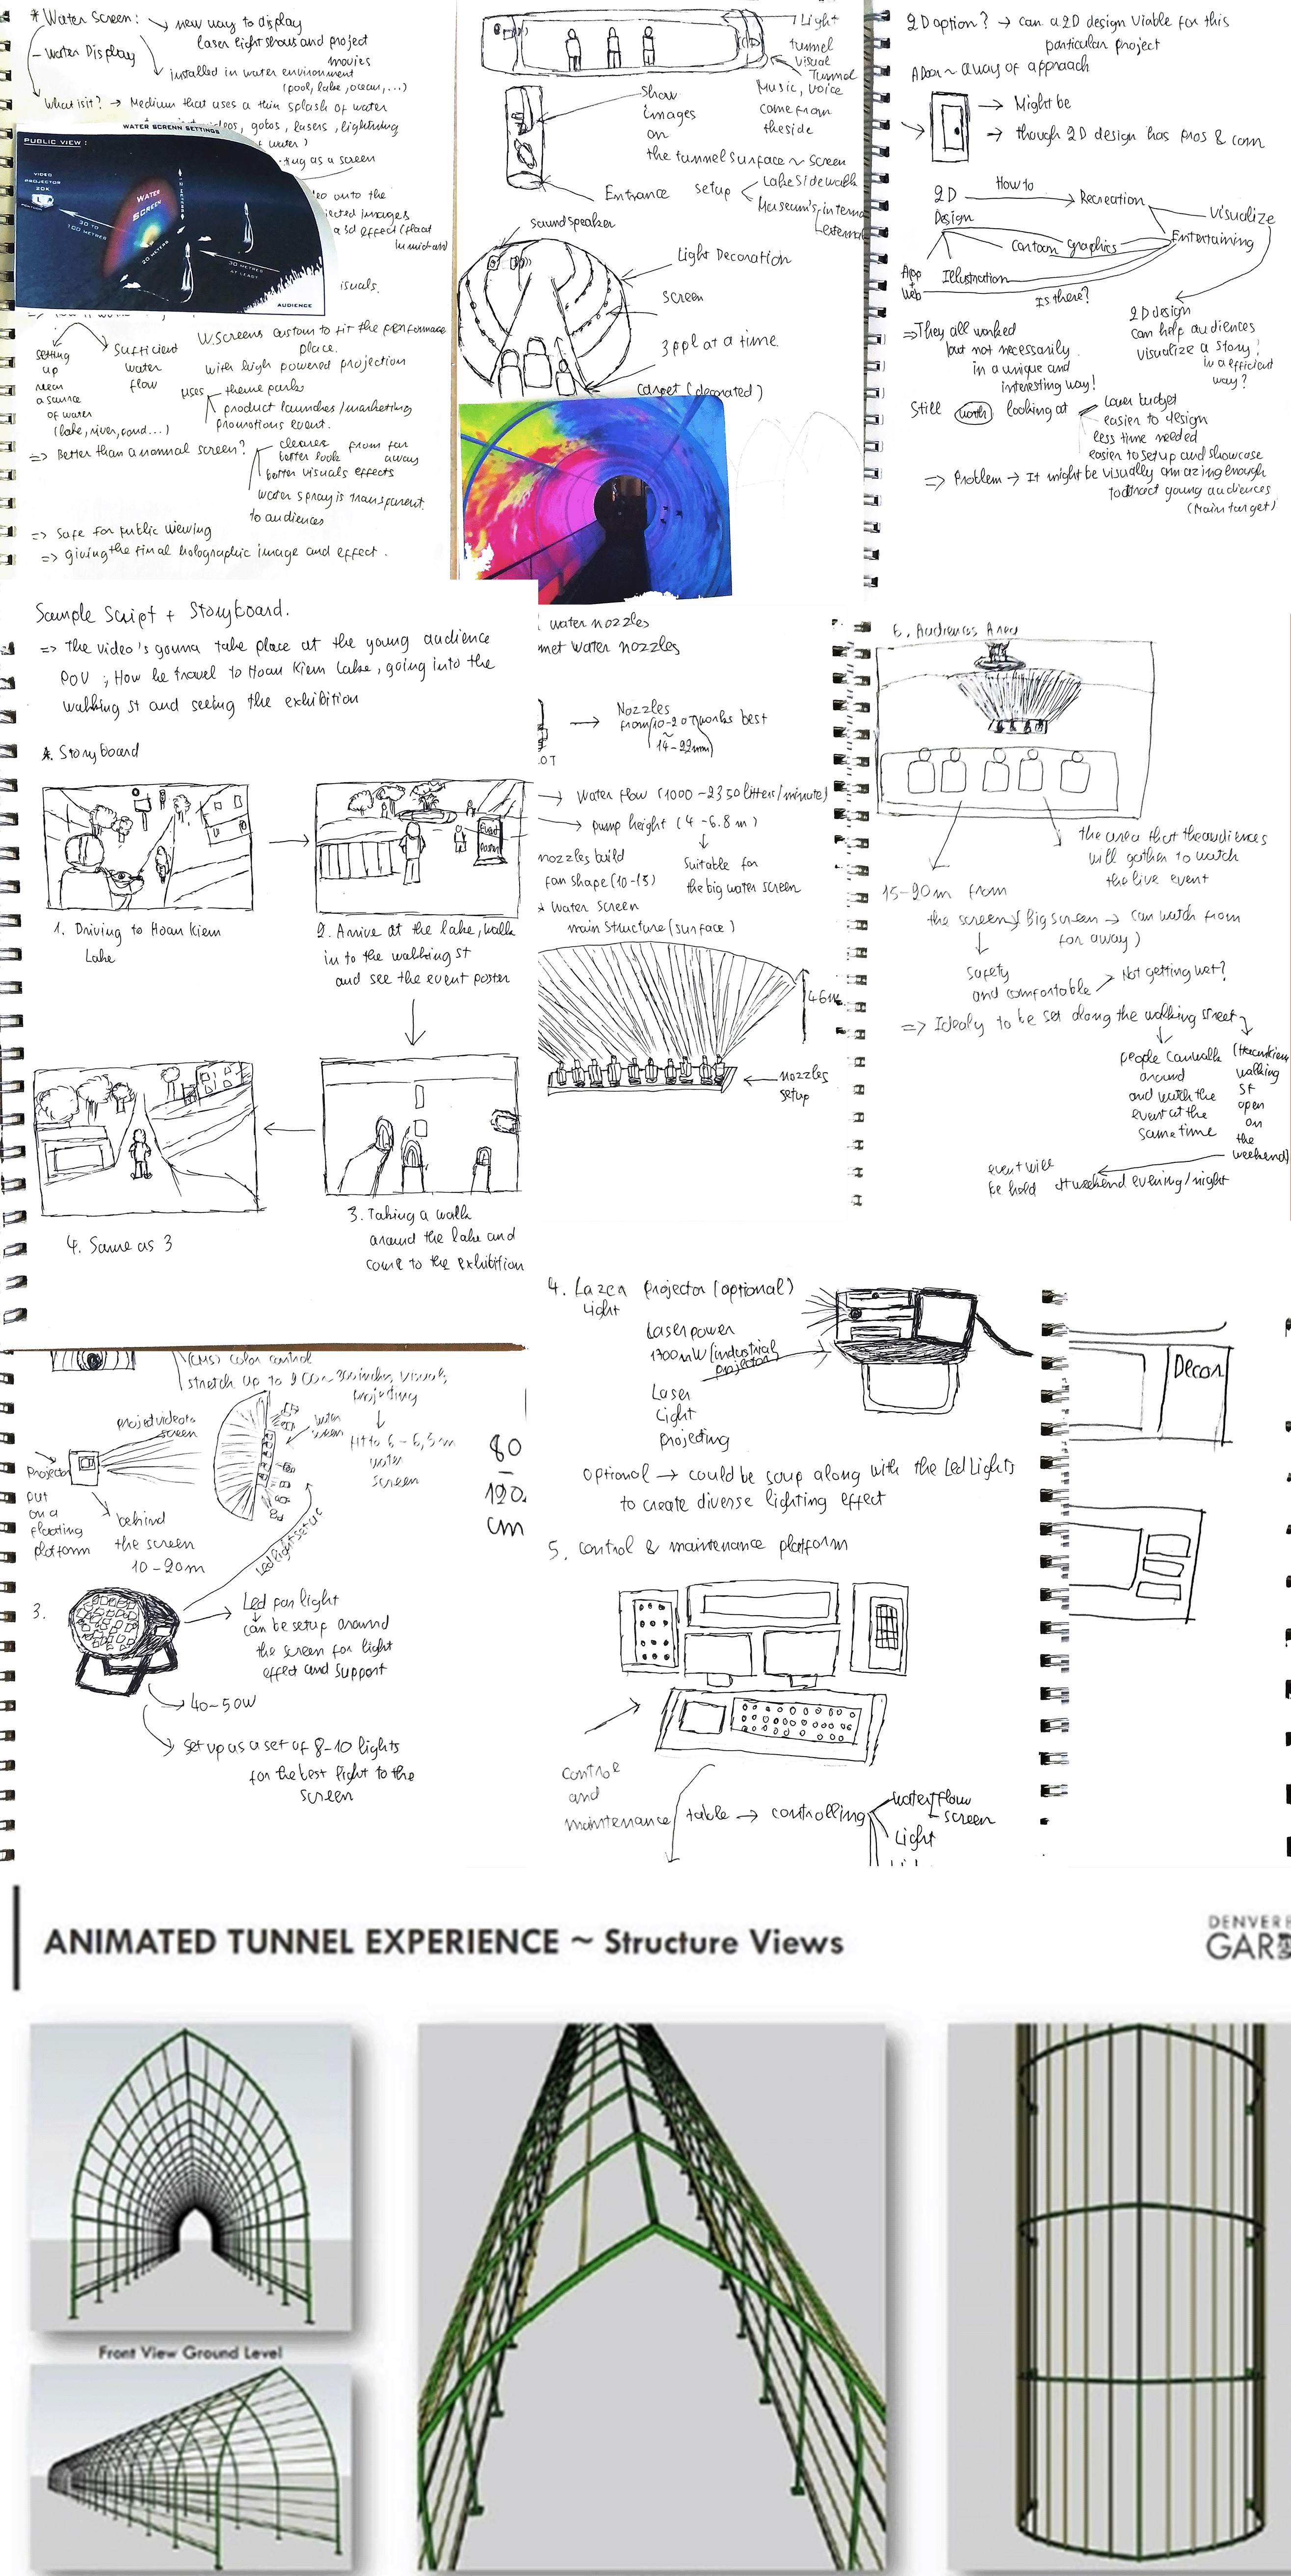 * Water Screen: → new way to display
laser light shows and project
movies
- Water Display
installed in water environment
(pool, lake, ocean,...)
What is it? → Medium that uses a thin splash of water
videos, gobos, lasers, lightning
water)
as a screen
WATER SCRENN SETTINGS
PUBLIC VIEW :
VIDEO
PROJECTOR
20K
WATER
SCREEN
30 TO
100 METRES
20 METERS
30 METRES
AT LEAST
AUDIENCE
onto the
images
a 3d effect (float
in midair)
isuals.
setting
up
near
a source
of water
(lake, river, pond...)
Sufficient
water
flow
W.Screens custom to fit the performance
place.
with high powered projection
uses
theme parks
product launches/marketing
promotions event.
=> Better than a normal screen?
clearer from far
better look away
better visuals effects
water spray is transparent
to audiences
=> Safe for public viewing
=> giving the final holographic image and effect.
Light
tunnel
Visual
Tunnel
Music, voice
come from
the side
Show
images
on
the tunnel surface ~ screen
Entrance
setup
Lake sidewalk
Museum's interna
external
sound speaker
Light Decoration
screen
3 ppl at a time
carpet (decorated)
2D option? → can a 2D design viable for this
particular project
A Door ~ a way of approach
→ Might be
→ though 2D design has pros & con
2D
Design
How to
Recreation
Visualize
Entertaining
Cartoon graphics
Illustration
App
+
Web
Is there?
2D design
can help audiences
visualize a story!
in a efficient
way?
=> They all worked
but not necessarily
in a unique and
interesting way!
Still worth looking at
Lower budget
easier to design
less time needed
easier to setup and showcase
=> Problem → It might be visually amazing enough
to attract young audiences
(Main target)
Sample Script + Storyboard.
=> The video's gonna take place at the young audience
POV ; How he travel to Hoan Kiem Lake, going into the
walking st and seeing the exhibition
* Storyboard
1. Driving to Hoan Kiem
Lake
2. Arrive at the lake, walk
in to the walking st
and see the event poster
3. Taking a walk
around the lake and
come to the exhibition
4. Same as 3
water nozzles
water nozzles
Nozzles
from (10-20) works best
(14-22mm)
Water flow (1000 - 2350 litters/minute)
pump height (4 - 6.8 m)
Suitable for
the big water screen
nozzles build
fan shape (10-15)
* Water Screen
main structure (surface)
nozzles
setup
6. Audiences Area
the area that the audiences
will gather to watch
the live event
15-20m from
the screen (Big screen → can watch from
far away)
Safety
and comfortable
Not getting wet?
=> Idealy to be set along the walking street
people can walk
around
and watch the
event at the
same time
(Hoan Kiem
walking
st
open
on
the
weekend)
event will
be hold at weekend evening/night
(CMS) color control
stretch up to 200 - 300 inches, visual
projecting
project video to
screen
water
screen
fit to 6 - 6,5m
water
screen
Projector
put
on a
floating
platform
behind
the screen
10 - 20m
Led light setup
80
-
120.
cm
3.
Led par light
can be setup around
the screen for light
effect and support
40-50W
Set up as a set of 8-10 lights
for the best light to the
screen
4. Lazer projector (optional)
Light
Laser power
1700mW (industrial
projector)
Laser
Light
Projecting
Optional → could be setup along with the Led Lights
to create diverse lighting effect
5. Control & maintenance platform
Control
and
maintenance table → controlling
water flow
screen
Light
Decor
ANIMATED TUNNEL EXPERIENCE ~ Structure Views
DENVER
GAR
Front View Ground Level